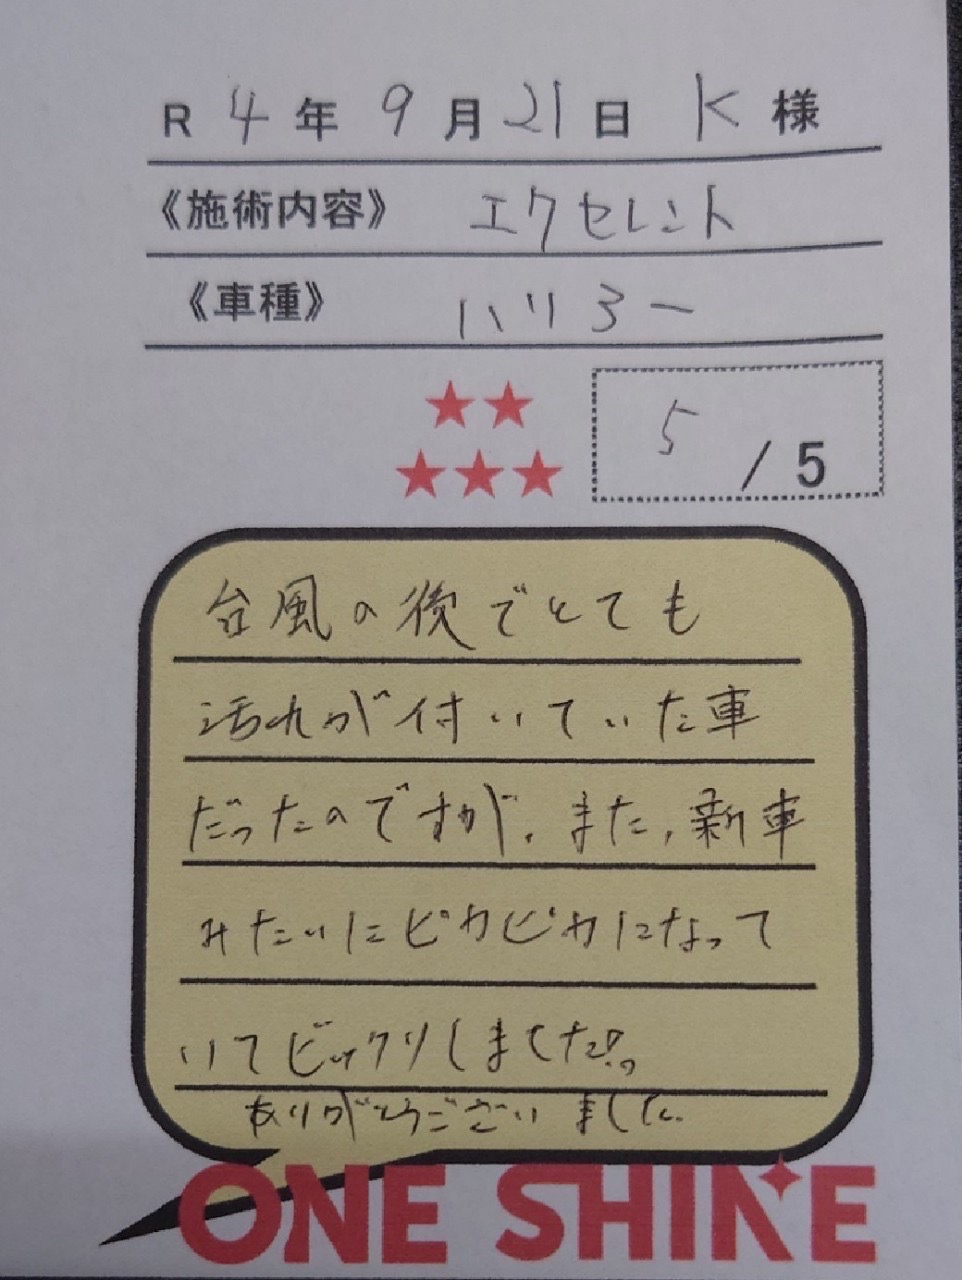 R 4年 9月 21日 K 様
《施術内容》 エクセレント
《車種》 ハリアー
5 / 5
台風の後でとても
汚れが付いていた車
だったのですが、また、新車
みたいにピカピカになって
いてビックリしました!!
ありがとうございました。
ONE SHINE